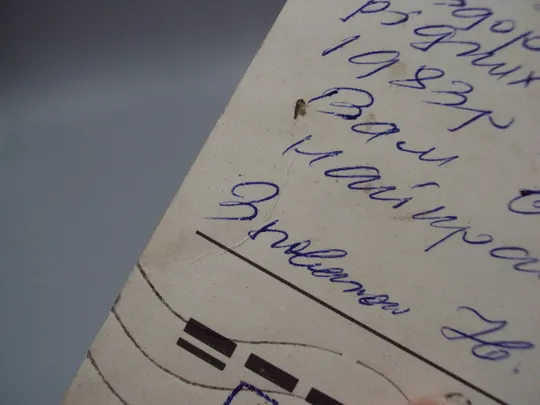 рідних
1983р
Вам
найкра
З повагою Н.